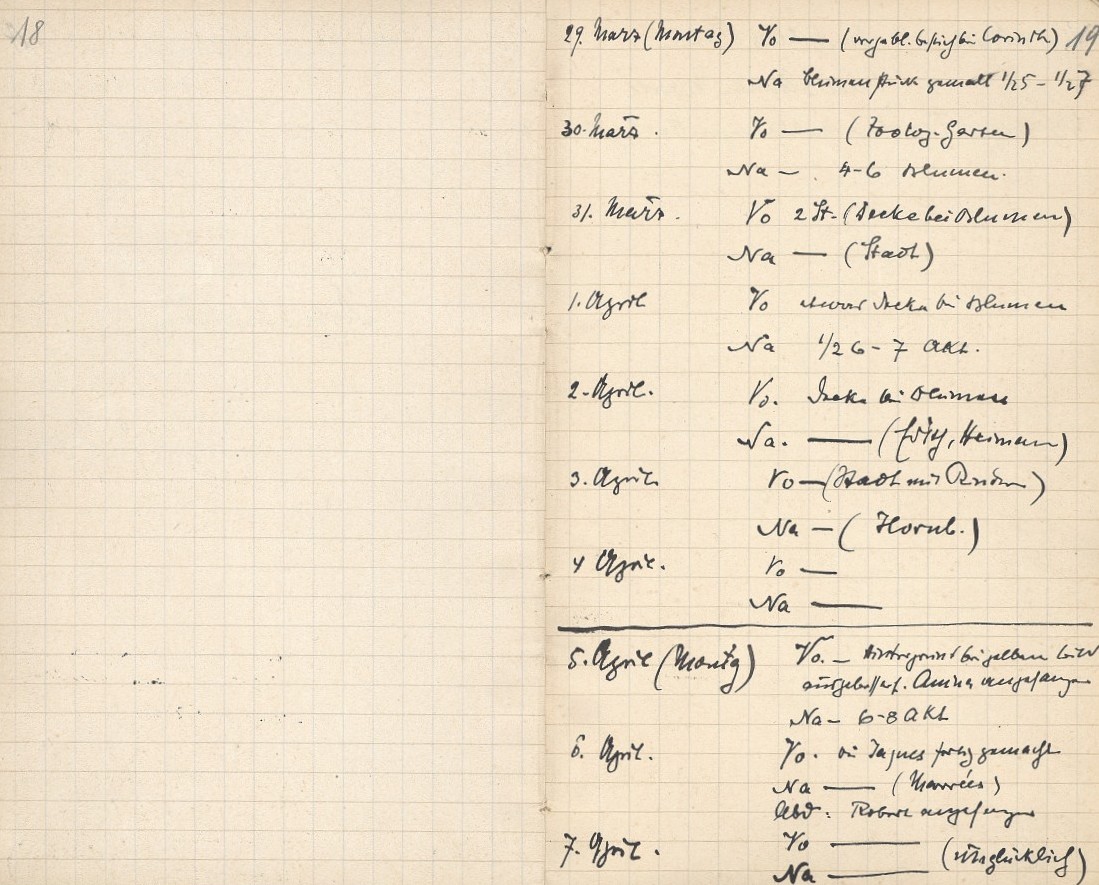 18
19
29. März (Montag) Vo — (vergebl. Besuch bei Corinth)
Na Blumenstück gemalt 1/25 – 1/27
30. März. Vo — (Zoolog. Garten)
Na – 4-6 Blumen.
31. März. Vo 2 St. (Decke bei Blumen)
Na — (Stadt)
1. April Vo etwas Decke bei Blumen
Na 1/2 6 – 7 Akt.
2. April. Vo. Decke bei Blumen
Na. — (Heimann)
3. April. Vo — (Stadt mit)
Na — (Hornb.)
4 April. Vo —
Na —
5. April (Montag) Vo. – Hintergrund bei gelbem Bild
ausgebessert. angefangen
Na – 6-8 Akt
6. April. Vo. fertig gemacht
Na — (Marées)
Abd: Robert angefangen
7. April. Vo — (unglücklich)
Na —